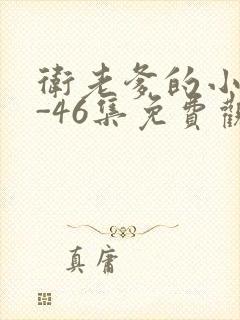 衛老爹的小
-46集免費觀
真庸